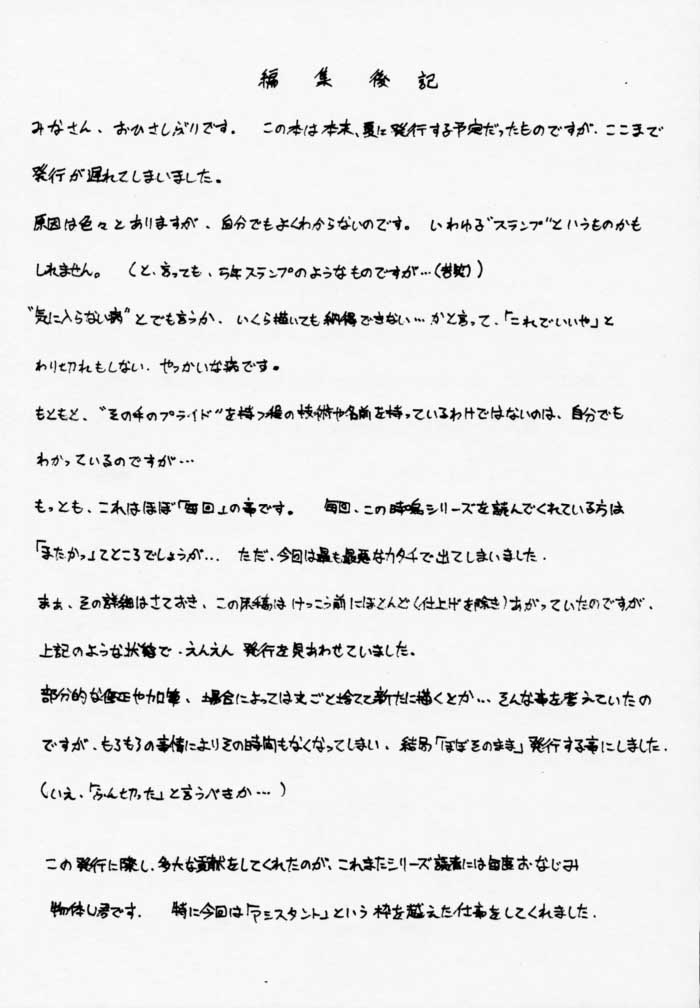 編集後記
みなさん、おひさしぶりです。 この本は本来、夏に発行する予定だったものですが、ここまで
発行が遅れてしまいました。
原因は色々とありますが、自分でもよくわからないのです。 いわゆる“スランプ”というものかも
しれません。 (と、言っても、万年スランプのようなものですが…(苦笑))
“気に入らない病”とでも言うか、いくら描いても納得できない…かと言って、「これでいいや」と
わり切れもしない、やっかいな病です。
もともと、“その手のプライド”を持つ程の技術や名前を持っているわけではないのは、自分でも
わかっているのですが…
もっとも、これはほぼ「毎回」の事です。 毎回、この時鳴シリーズを読んでくれている方は
「またかっ」てところでしょうが… ただ、今回は最も最悪なカタチで出てしまいました.
まぁ、その詳細はさておき、この原稿はけっこう前にほとんど(仕上げを除き)あがっていたのですが、
上記のような状態で、えんえん発行を見あわせていました。
部分的な修正や加筆、場合によっては丸ごと捨てて新たに描くとか…そんな事を考えていたの
ですが、もろもろの事情によりその時間もなくなってしまい、結局「ほぼそのまま」発行する事にしました.
(いえ、「ふん切った」と言うべきか…)
この発行に際し、多大な貢献をしてくれたのが、これまたシリーズ読者には毎度おなじみ
物体U君です. 特に今回は「アシスタント」という枠を越えた仕事をしてくれました.